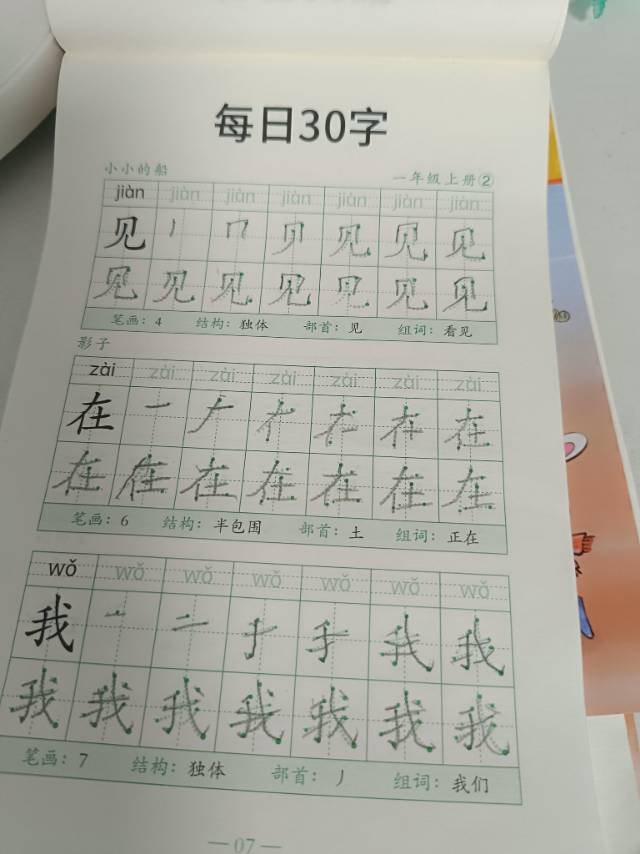 每日30字
小小的船 一年级上册②
jiàn jiàn jiàn jiàn jiàn jiàn jiàn
见 丨 冂 贝 见 见 见
见 见 见 见 见 见 见
笔画：4 结构：独体 部首：见 组词：看见
影子
zài zài zài zài zài zài zài
在 一 𠂇 在 在
在 在 在 在 在 在 在
笔画：6 结构：半包围 部首：土 组词：正在
wǒ wǒ wǒ wǒ wǒ wǒ wǒ
我 ㇒ 二 于 手 我 我
我 我 我 我 我 我 我
笔画：7 结构：独体 部首：丿 组词：我们
— 07 —